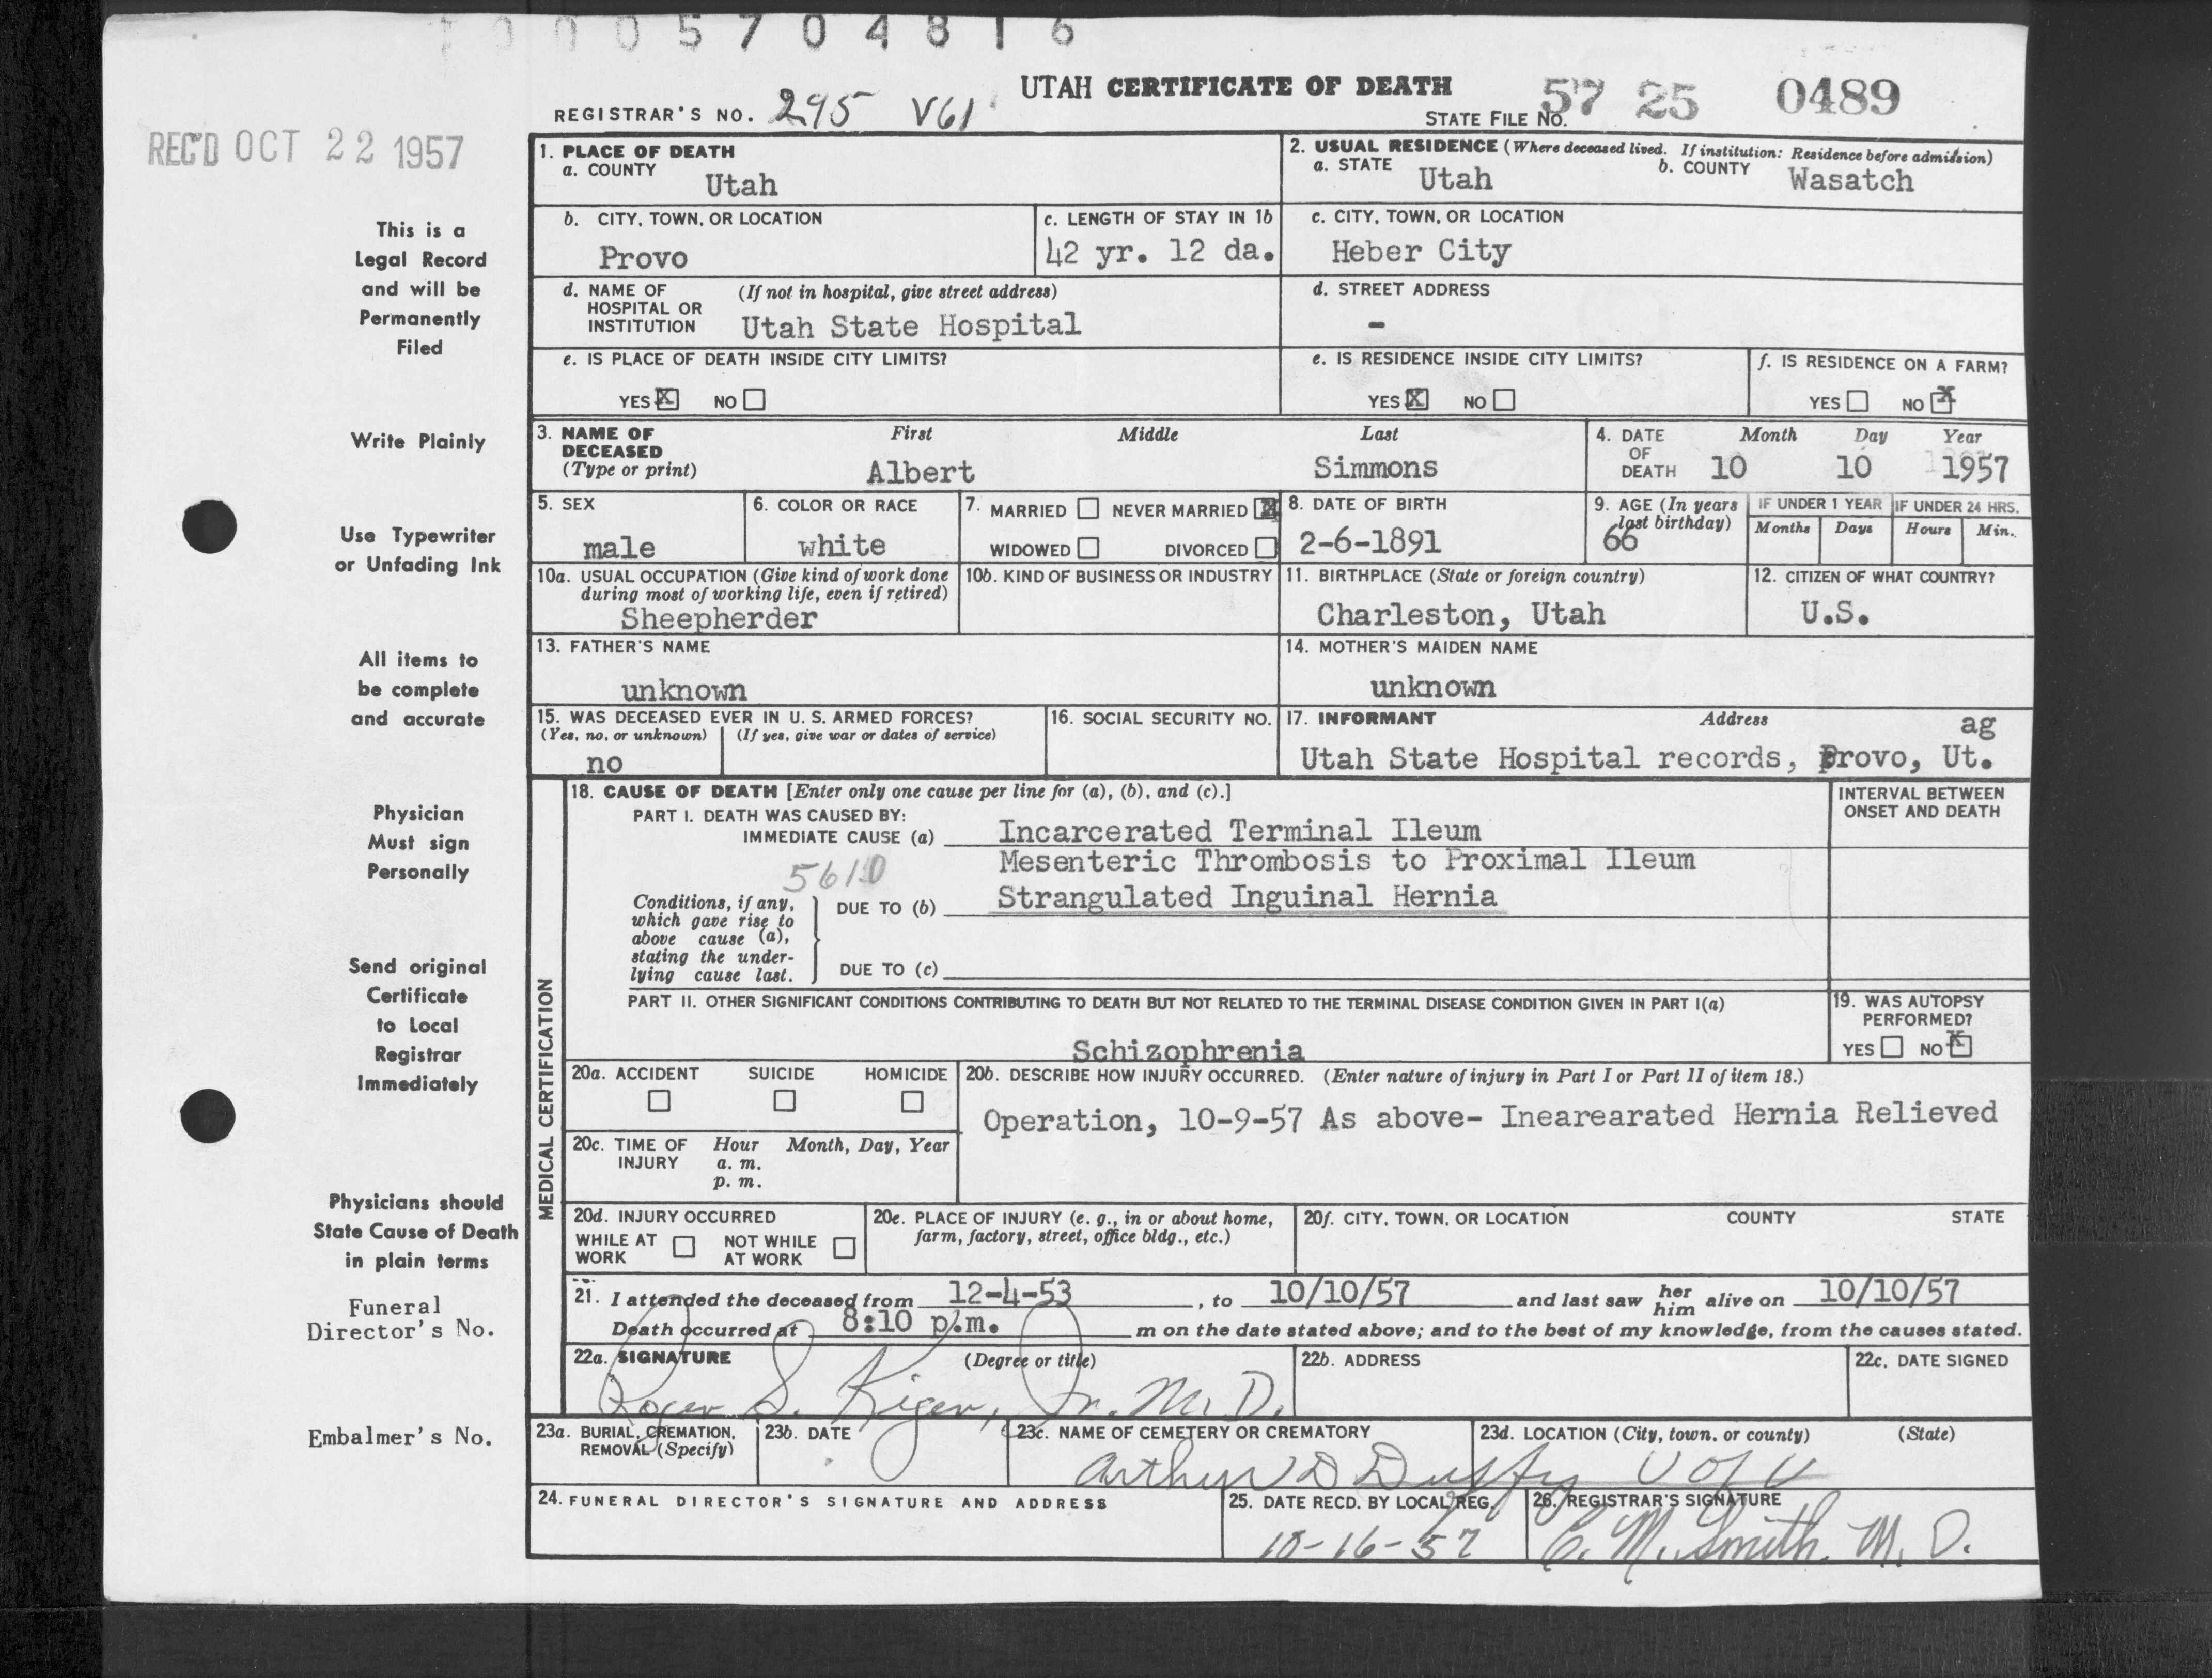 5 7 0 4 8 1 6
UTAH CERTIFICATE OF DEATH
REGISTRAR'S NO. 295 V61
STATE FILE NO. 57 25 0489
REC'D OCT 22 1957
1. PLACE OF DEATH
a. COUNTY
Utah
2. USUAL RESIDENCE (Where deceased lived. If institution: Residence before admission)
a. STATE Utah b. COUNTY Wasatch
b. CITY, TOWN, OR LOCATION
Provo
c. LENGTH OF STAY IN 1b
42 yr. 12 da.
c. CITY, TOWN, OR LOCATION
Heber City
d. NAME OF HOSPITAL OR INSTITUTION
(If not in hospital, give street address)
Utah State Hospital
d. STREET ADDRESS
-
e. IS PLACE OF DEATH INSIDE CITY LIMITS?
YES X NO
e. IS RESIDENCE INSIDE CITY LIMITS?
YES X NO
f. IS RESIDENCE ON A FARM?
YES NO X
3. NAME OF DECEASED
(Type or print)
First Middle Last
Albert Simmons
4. DATE OF DEATH
Month Day Year
10 10 1957
5. SEX
male
6. COLOR OR RACE
white
7. MARRIED NEVER MARRIED X
WIDOWED DIVORCED
8. DATE OF BIRTH
2-6-1891
9. AGE (In years last birthday)
66
IF UNDER 1 YEAR
Months Days
IF UNDER 24 HRS.
Hours Min.
10a. USUAL OCCUPATION (Give kind of work done
during most of working life, even if retired)
Sheepherder
10b. KIND OF BUSINESS OR INDUSTRY
11. BIRTHPLACE (State or foreign country)
Charleston, Utah
12. CITIZEN OF WHAT COUNTRY?
U.S.
13. FATHER'S NAME
unknown
14. MOTHER'S MAIDEN NAME
unknown
15. WAS DECEASED EVER IN U. S. ARMED FORCES?
(Yes, no, or unknown) (If yes, give war or dates of service)
no
16. SOCIAL SECURITY NO.
17. INFORMANT Address
ag
Utah State Hospital records, Provo, Ut.
MEDICAL CERTIFICATION
18. CAUSE OF DEATH [Enter only one cause per line for (a), (b), and (c).]
INTERVAL BETWEEN
ONSET AND DEATH
PART I. DEATH WAS CAUSED BY:
IMMEDIATE CAUSE (a) Incarcerated Terminal Ileum
Mesenteric Thrombosis to Proximal Ileum
5610
Conditions, if any,
which gave rise to
above cause (a),
stating the under-
lying cause last.
DUE TO (b) Strangulated Inguinal Hernia
DUE TO (c)
PART II. OTHER SIGNIFICANT CONDITIONS CONTRIBUTING TO DEATH BUT NOT RELATED TO THE TERMINAL DISEASE CONDITION GIVEN IN PART I(a)
Schizophrenia
19. WAS AUTOPSY
PERFORMED?
YES NO X
20a. ACCIDENT SUICIDE HOMICIDE
20b. DESCRIBE HOW INJURY OCCURRED. (Enter nature of injury in Part I or Part II of item 18.)
Operation, 10-9-57 As above- Inearearated Hernia Relieved
20c. TIME OF INJURY
Hour Month, Day, Year
a. m.
p. m.
20d. INJURY OCCURRED
WHILE AT WORK NOT WHILE AT WORK
20e. PLACE OF INJURY (e. g., in or about home,
farm, factory, street, office bldg., etc.)
20f. CITY, TOWN, OR LOCATION COUNTY STATE
21. I attended the deceased from 12-4-53, to 10/10/57 and last saw her him alive on 10/10/57
Death occurred at 8:10 p.m. m on the date stated above; and to the best of my knowledge, from the causes stated.
22a. SIGNATURE (Degree or title)
Roger S. Kiger, Jr. M. D.
22b. ADDRESS
22c. DATE SIGNED
23a. BURIAL, CREMATION,
REMOVAL (Specify)
23b. DATE
23c. NAME OF CEMETERY OR CREMATORY
23d. LOCATION (City, town, or county) (State)
Arthur D Duffy U of U
24. FUNERAL DIRECTOR'S SIGNATURE AND ADDRESS
25. DATE RECD. BY LOCAL REG.
10-16-57
26. REGISTRAR'S SIGNATURE
C. M. Smith M. D.
This is a
Legal Record
and will be
Permanently
Filed
Write Plainly
Use Typewriter
or Unfading Ink
All items to
be complete
and accurate
Physician
Must sign
Personally
Send original
Certificate
to Local
Registrar
Immediately
Physicians should
State Cause of Death
in plain terms
Funeral
Director's No.
Embalmer's No.